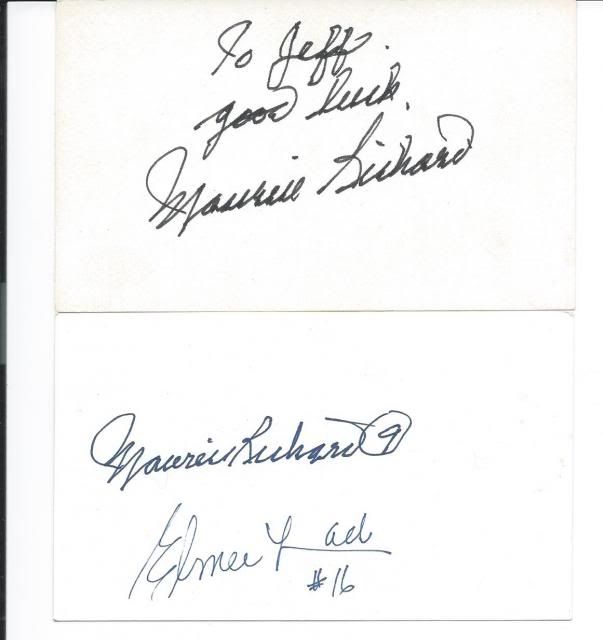 To Jeff.
good luck.
Maurice Richard
Maurice Richard 9
Elmer Lach
#16